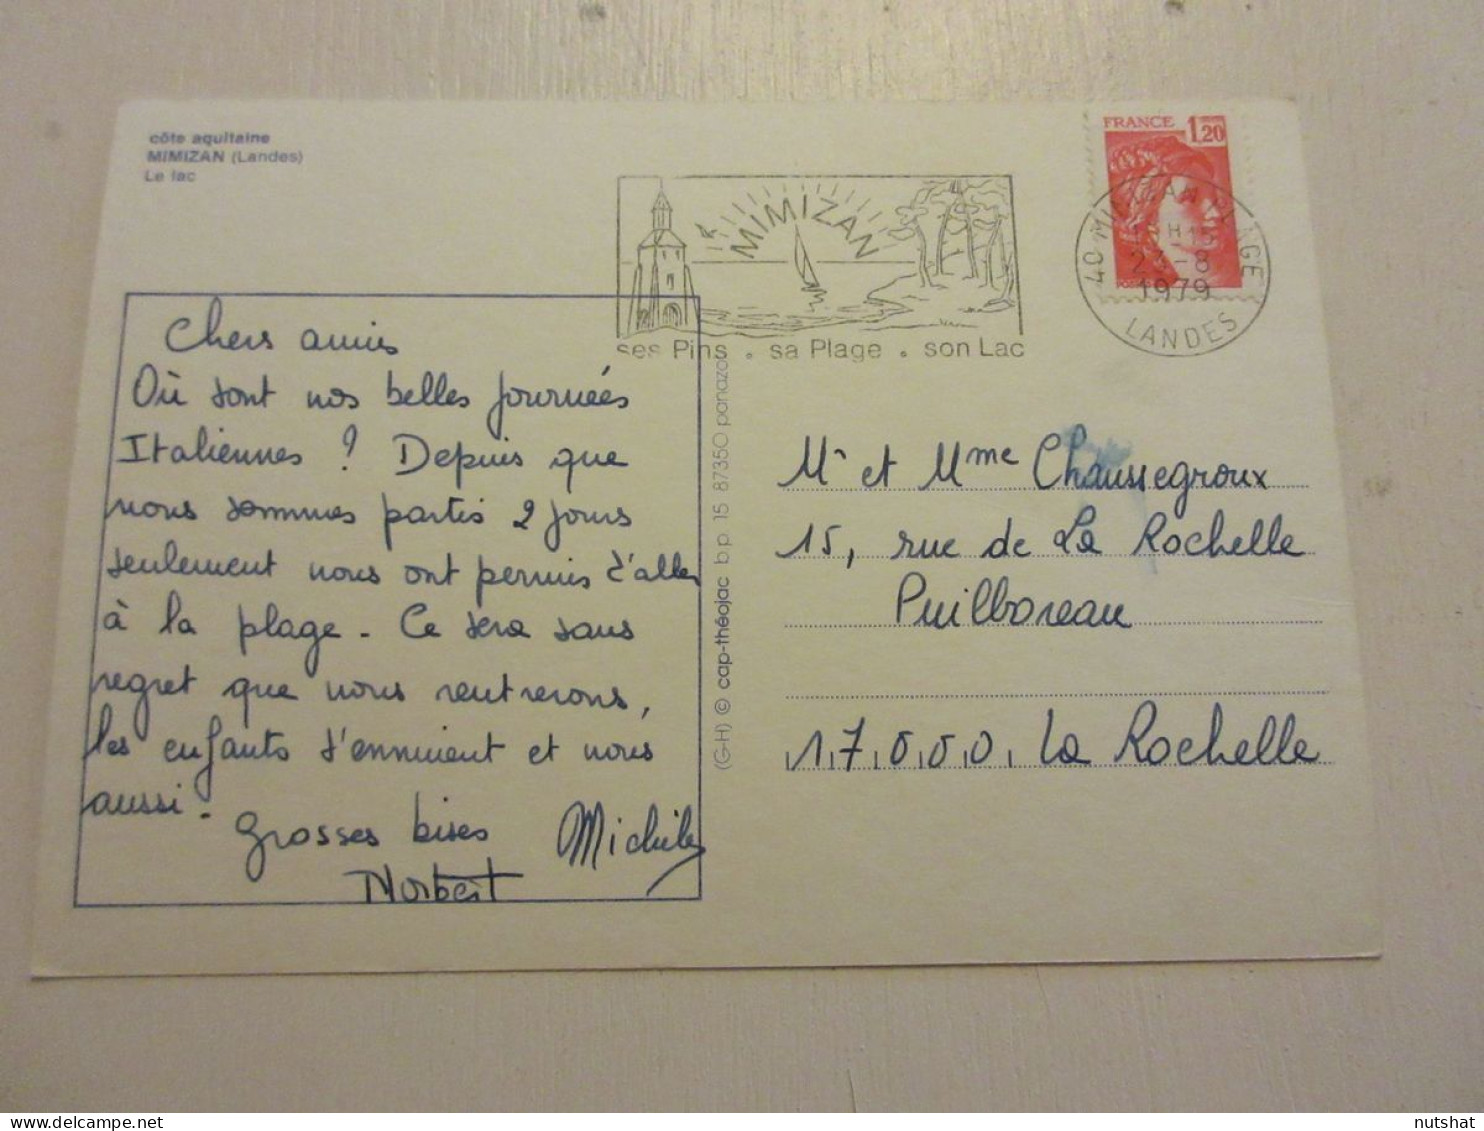 côte aquitaine
MIMIZAN (Landes)
Le lac
FRANCE 1,20
MIMIZAN
ses Pins . sa Plage . son Lac
40 MIMIZAN PLAGE
H15
23-8
1979
LANDES
Chers amis
Où sont nos belles journées
Italiennes ? Depuis que
nous sommes partis 2 jours
seulement nous ont permis d'aller
à la plage - Ce sera sans
regret que nous rentrerons,
les enfants s'ennuient et nous
aussi.
Grosses bises Michèle
Norbert
(G-H) © cap-théojac b.p. 15 87350 panazol
Mr et Mme Chaussegroux
15, rue de La Rochelle
Puilboreau
17000 La Rochelle
nutshat